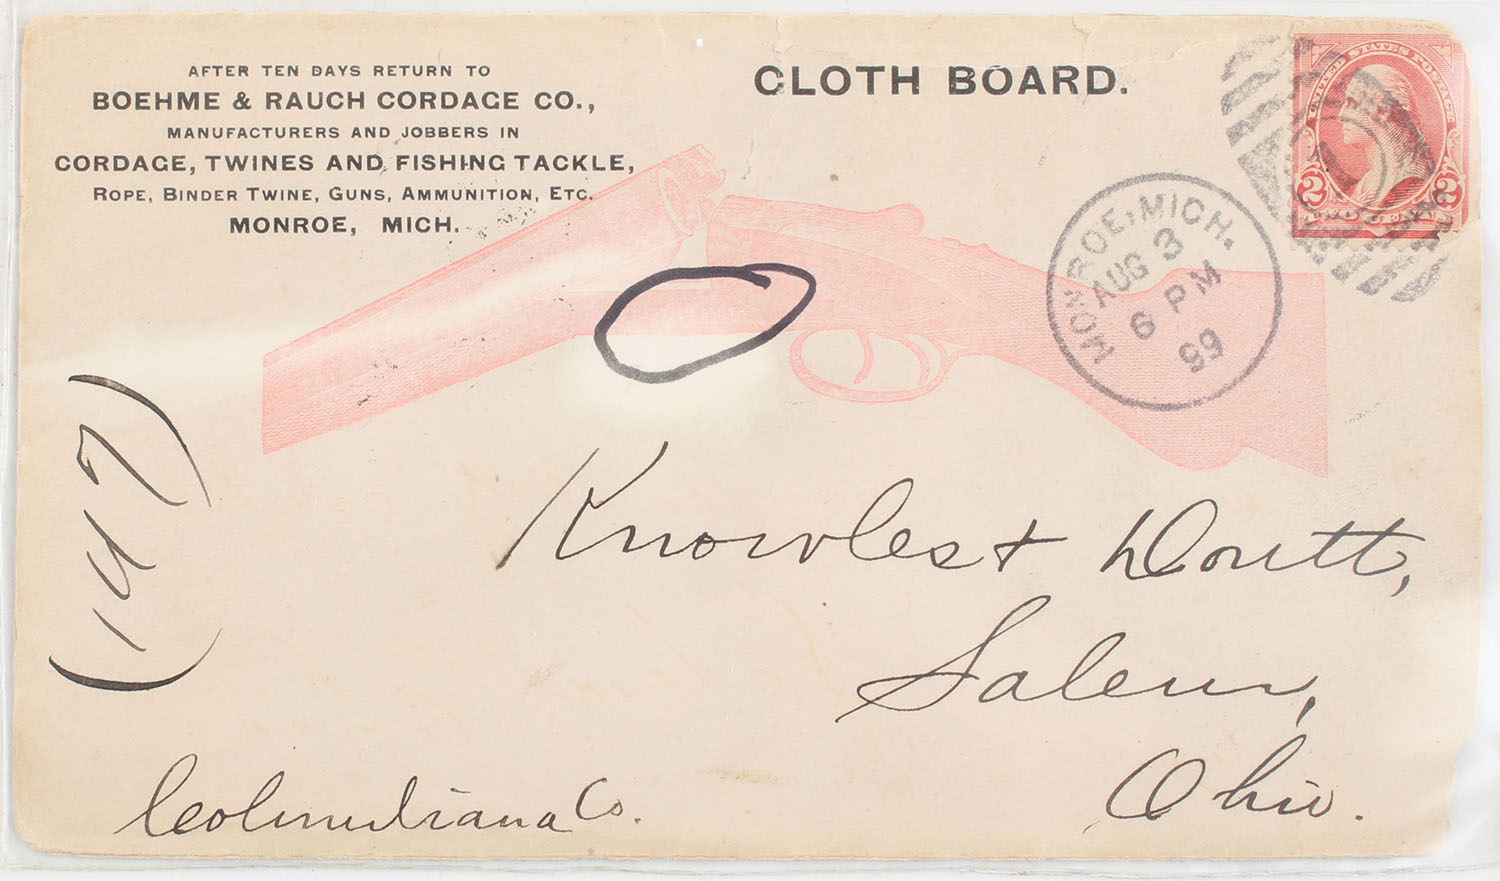 AFTER TEN DAYS RETURN TO
BOEHME & RAUCH CORDAGE CO.,
MANUFACTURERS AND JOBBERS IN
CORDAGE, TWINES AND FISHING TACKLE,
ROPE, BINDER TWINE, GUNS, AMMUNITION, ETC.
MONROE, MICH.
CLOTH BOARD.
UNITED STATES POSTAGE
2 2
MONROE, MICH.
AUG 3
6 PM
99
Knowles & Doutt,
Salem,
Ohio.
Columbiana Co.